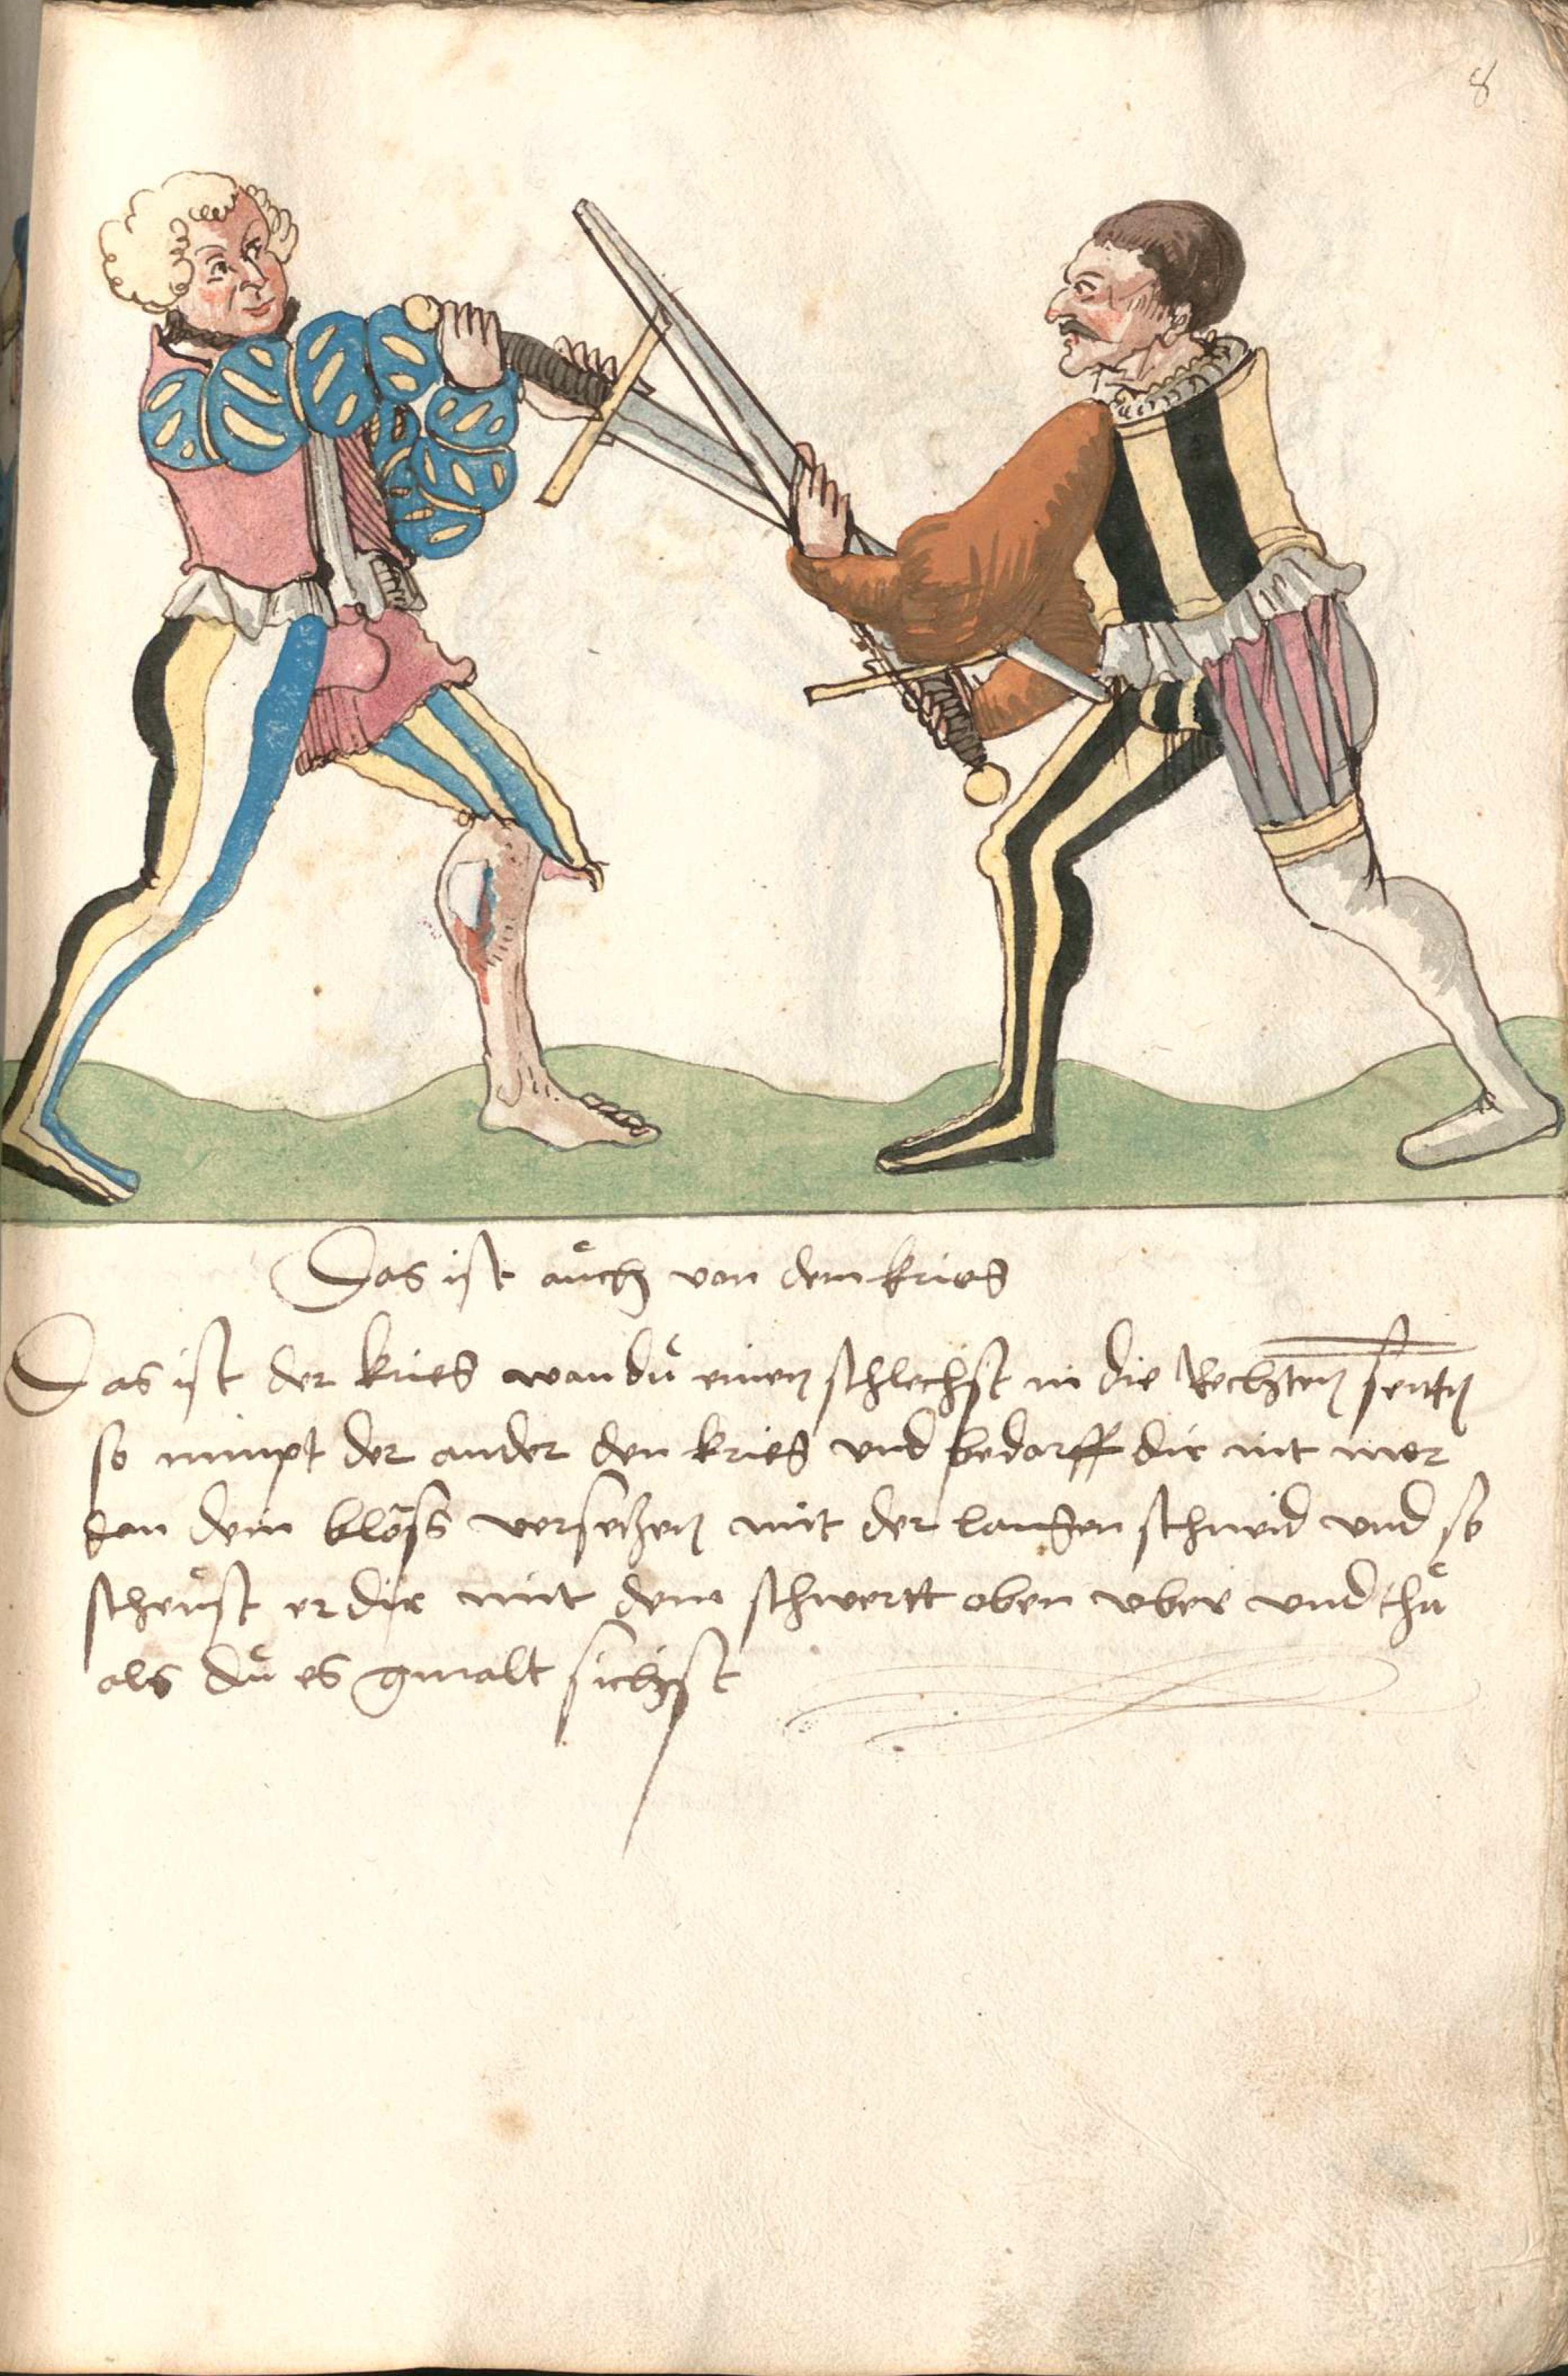 8
Das ist aůch von dem krieg
Das ist der krieg wan dů einen schlechst in die Rechten seitten
so nimpt der ander den krieg vnd bedarff dir nit mer
dan dein blöss versetzen mit der langen schneid vnd so
scheůst er dir mit dem schwertt oben vber vnd thů
als dů es gmalt sichst